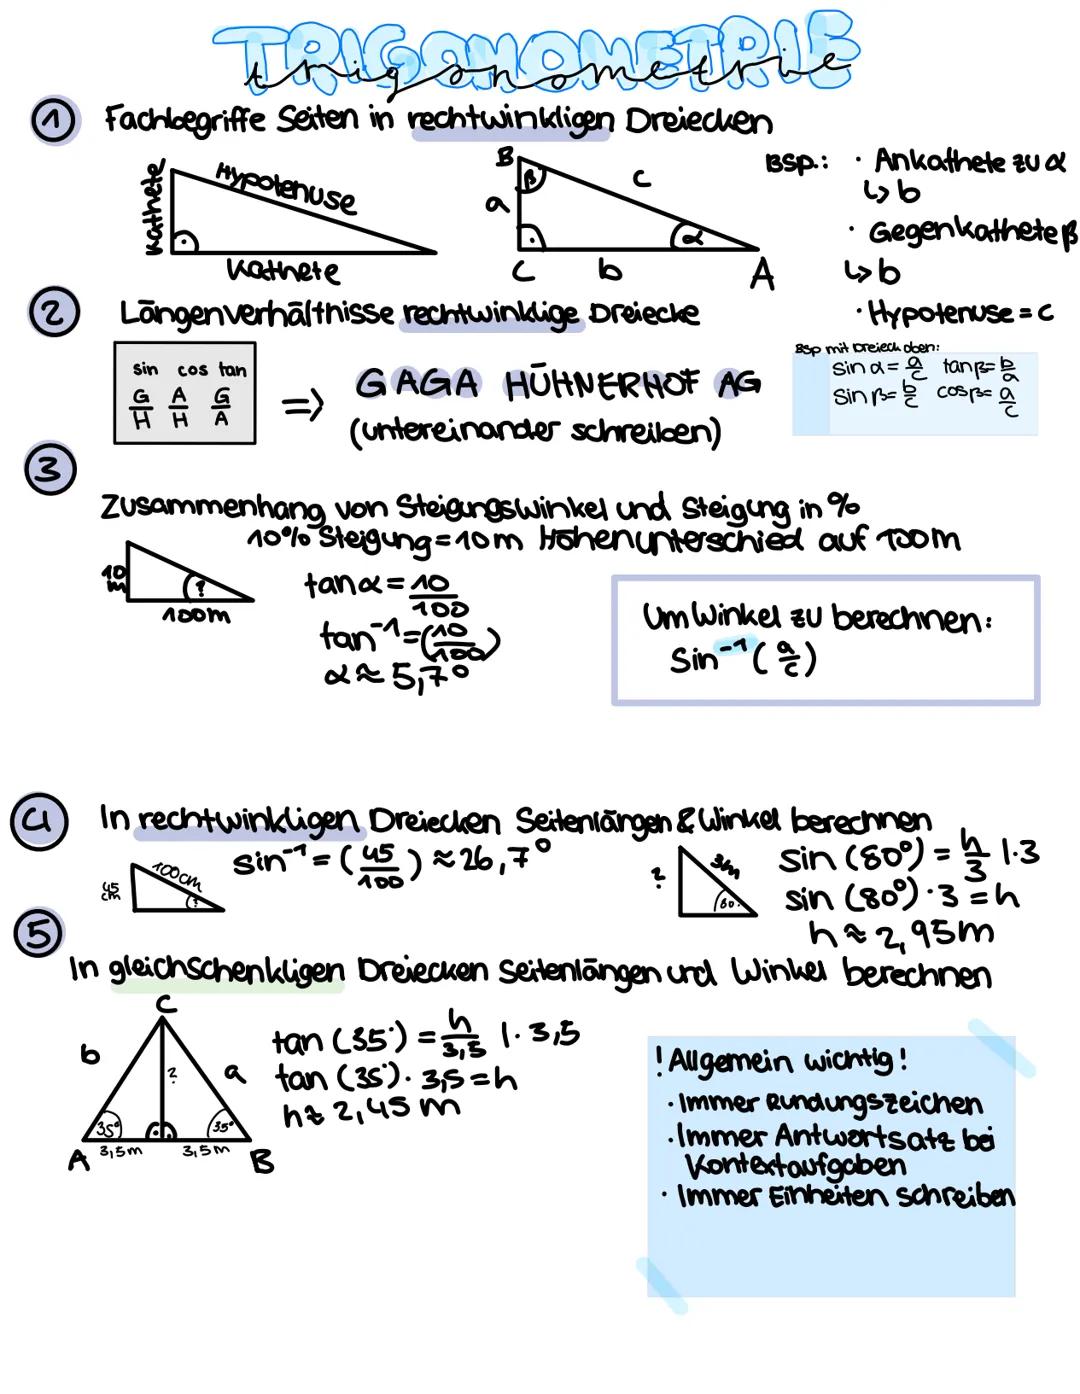 TRIGONOMETRIE
trigonometrie
1 Fachbegriffe Seiten in rechtwinkligen Dreiecken
Kathete
Hypotenuse
Kathete
B
β
a
c
α
C
b
A
BSP.: · Ankathete zu α
↳ b
· Gegenkathete β
↳ b
· Hypotenuse = c
2 Längenverhältnisse rechtwinklige Dreiecke
sin cos tan
G/H A/H G/A
=> GAGA HÜHNERHOF AG
(untereinander schreiben)
Bsp mit Dreieck oben:
sin α = a/c tan β = b/a
sin β = b/c cos β = a/c
3
Zusammenhang von Steigungswinkel und Steigung in %
10% Steigung = 10m Höhenunterschied auf 100m
10 m
?
100m
tan α = 10/100
tan⁻¹ = (10/100)
α ≈ 5,7°
Um Winkel zu berechnen:
Sin⁻¹ (a/c)
4 In rechtwinkligen Dreiecken Seitenlängen & Winkel berechnen
45 cm
100cm
?
sin⁻¹ = (45/100) ≈ 26,7°
?
3m
80°
sin (80°) = h/3 |·3
sin (80°) · 3 = h
h ≈ 2,95m
5
In gleichschenkligen Dreiecken Seitenlängen und Winkel berechnen
C
b
?
a
35°
35°
A
3,5m
3,5m
B
tan (35°) = h/3,5 |· 3,5
tan (35°) · 3,5 = h
h ≈ 2,45 m
! Allgemein wichtig !
· Immer Rundungszeichen
· Immer Antwortsatz bei
Kontextaufgaben
· Immer Einheiten schreiben